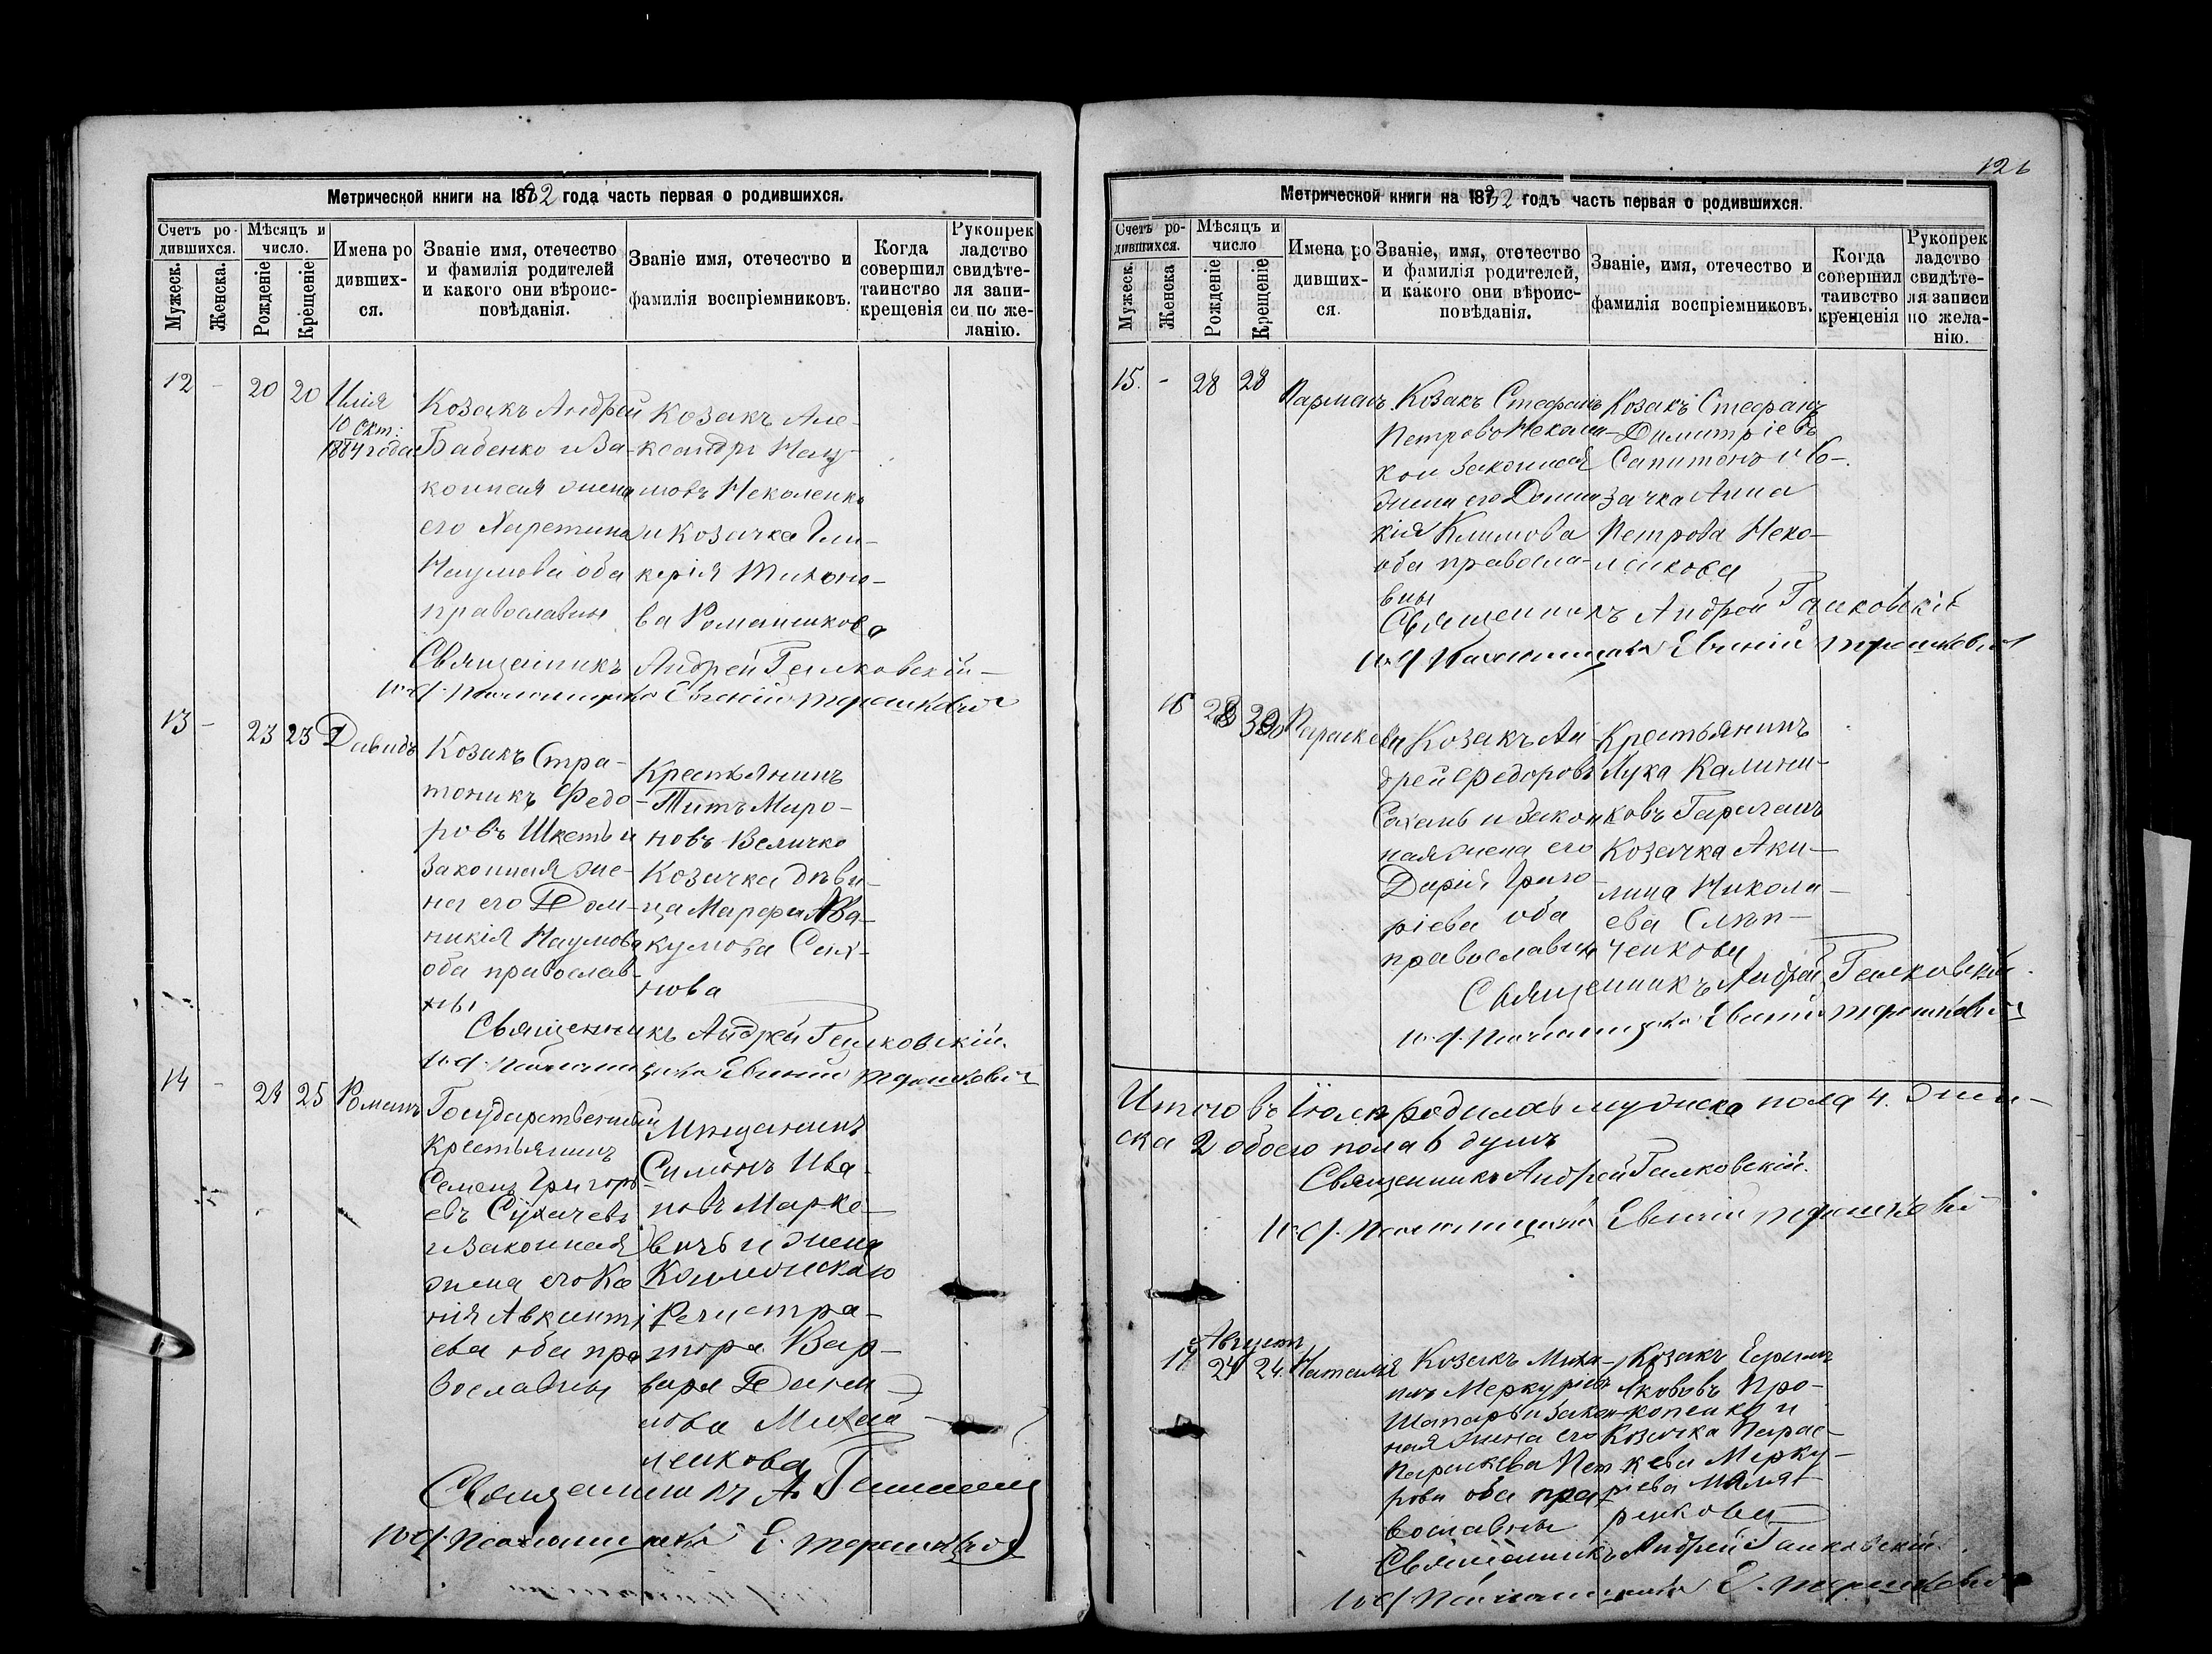 Метрической книги на 1882 года часть первая о родившихся.
Счетъ ро-
дившихся.
Мужеск.
Женска.
Мѣсяцъ и
число.
Рожденіе
Крещеніе
Имена ро
дивших-
ся.
Званіе имя, отечество
и фамилія родителей
и какого они вѣроис-
повѣданія.
Званіе имя, отечество и
фамилія воспріемниковъ.
Когда
совершил
таинство
крещенія
Рукопрек
ладство
свидѣте-
ля запи-
си по же-
ланію.
12 - 20 20 Илія
10 Окт:
1884 года
Козакъ Андрей
Бабенко и За-
конная жена
его Харетина
Наумова оба
православны
Козакъ Але-
ксандръ Нау-
мовъ Неколенко
и Козачка Гли-
керія Тихоно-
ва Романкова
Священникъ Андрей Галковскій
13 - 23 23 Давидъ
Козакъ Стра-
тоникъ Федо-
ровъ Шкеть и
Законная же-
на его Дом-
никія Наумова
оба православ-
ны
Крестьянинъ
Титъ Миро-
новъ Величко
Козачка дѣви-
ца Марфа Авва-
кумова
нова
Священникъ Андрей Галковскій.
14 - 24 25 Романъ
Государственный
Крестьянинъ
Семенъ Григорь-
евъ Сухачевъ
и Законная
жена его Ксе
нія Авксенті
ева оба пра
вославны
Мѣщанинъ
Симонъ Ива-
новъ Марко-
вичъ и жена
Коллежскаго
Регистра-
тора Вар-
вара Дани
лова Михай
ленкова
Священникъ А. Галковскій
126
Метрической книги на 1882 годъ часть первая о родившихся.
Счетъ ро-
дившихся.
Мужеск.
Женска
Мѣсяцъ и
число
Рожденіе
Крещеніе
Имена ро
дивших-
ся.
Званіе, имя, отечество
и фамилія родителей,
и какого они вѣроис-
повѣданія.
Званіе, имя, отечество и
фамилія воспріемниковъ.
Когда
совершил
таивство
крещенія
Рукопрек
ладство
свидѣте-
ля записи
по жела-
нію.
15. - 28 28 Парманъ
Козакъ Стефанъ
Петровъ
Законная
жена его Домни
кія Климова
оба правосла-
вны
Козакъ Стефанъ
Димитріевъ
Сапитонъ и Ко-
зачка Анна
Петрова Неко-
ленкова
Священникъ Андрей Галковскій
16 28 30 Параскева
Козакъ Ан
дрей Федоровъ
Сахань и закон
ная жена его
Дарія Григо-
ріева оба
православны
Крестьянинъ
Лука Калини-
ковъ
Козачка Аки-
лина Никола-
ева Слѣп-
ченкова
Священникъ Андрей Галковскій
Итого въ Іюлѣ родилось мужеска пола 4. жен-
ска 2 обоего пола 6 душъ
Священникъ Андрей Галковскій.
Августъ
17 24 24. Наталія
Козакъ Миха-
илъ Меркуріевъ
Шапаръ и закон
ная жена его
Параскева Пет
рова оба пра-
вославны
Козакъ Ефимъ
Яковлевъ Про-
копенко и
Козачка Парас-
кева Мерку-
ріева Маля-
ренкова
Священникъ Андрей Галковскій.